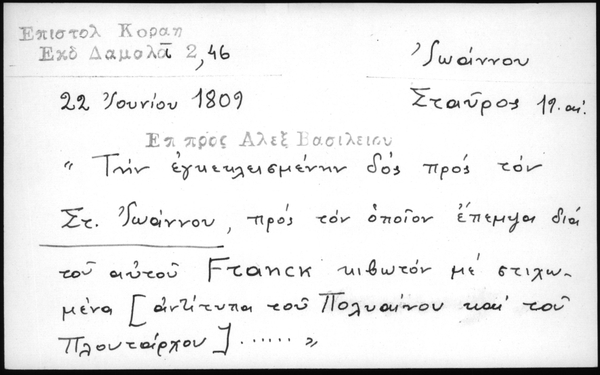 Επιστολ Κοραη
Εκδ Δαμαλᾶ 2, 46
Ἰωάννου
22 Ἰουνίου 1809
Σταῦρος 19. αἰ.
Επ προς Αλεξ Βασιλειου
" Τὴν ἐγκεκλεισμένην δός πρός τόν
Στ. Ἰωάννου, πρός τόν ὁποῖον ἔπεμψα διά
τοῦ αὐτοῦ Franck κιβωτόν μέ στιχω-
μένα [ἀντίτυπα τοῦ Πολυαίνου καί τοῦ
Πλουτάρχου] ...... "